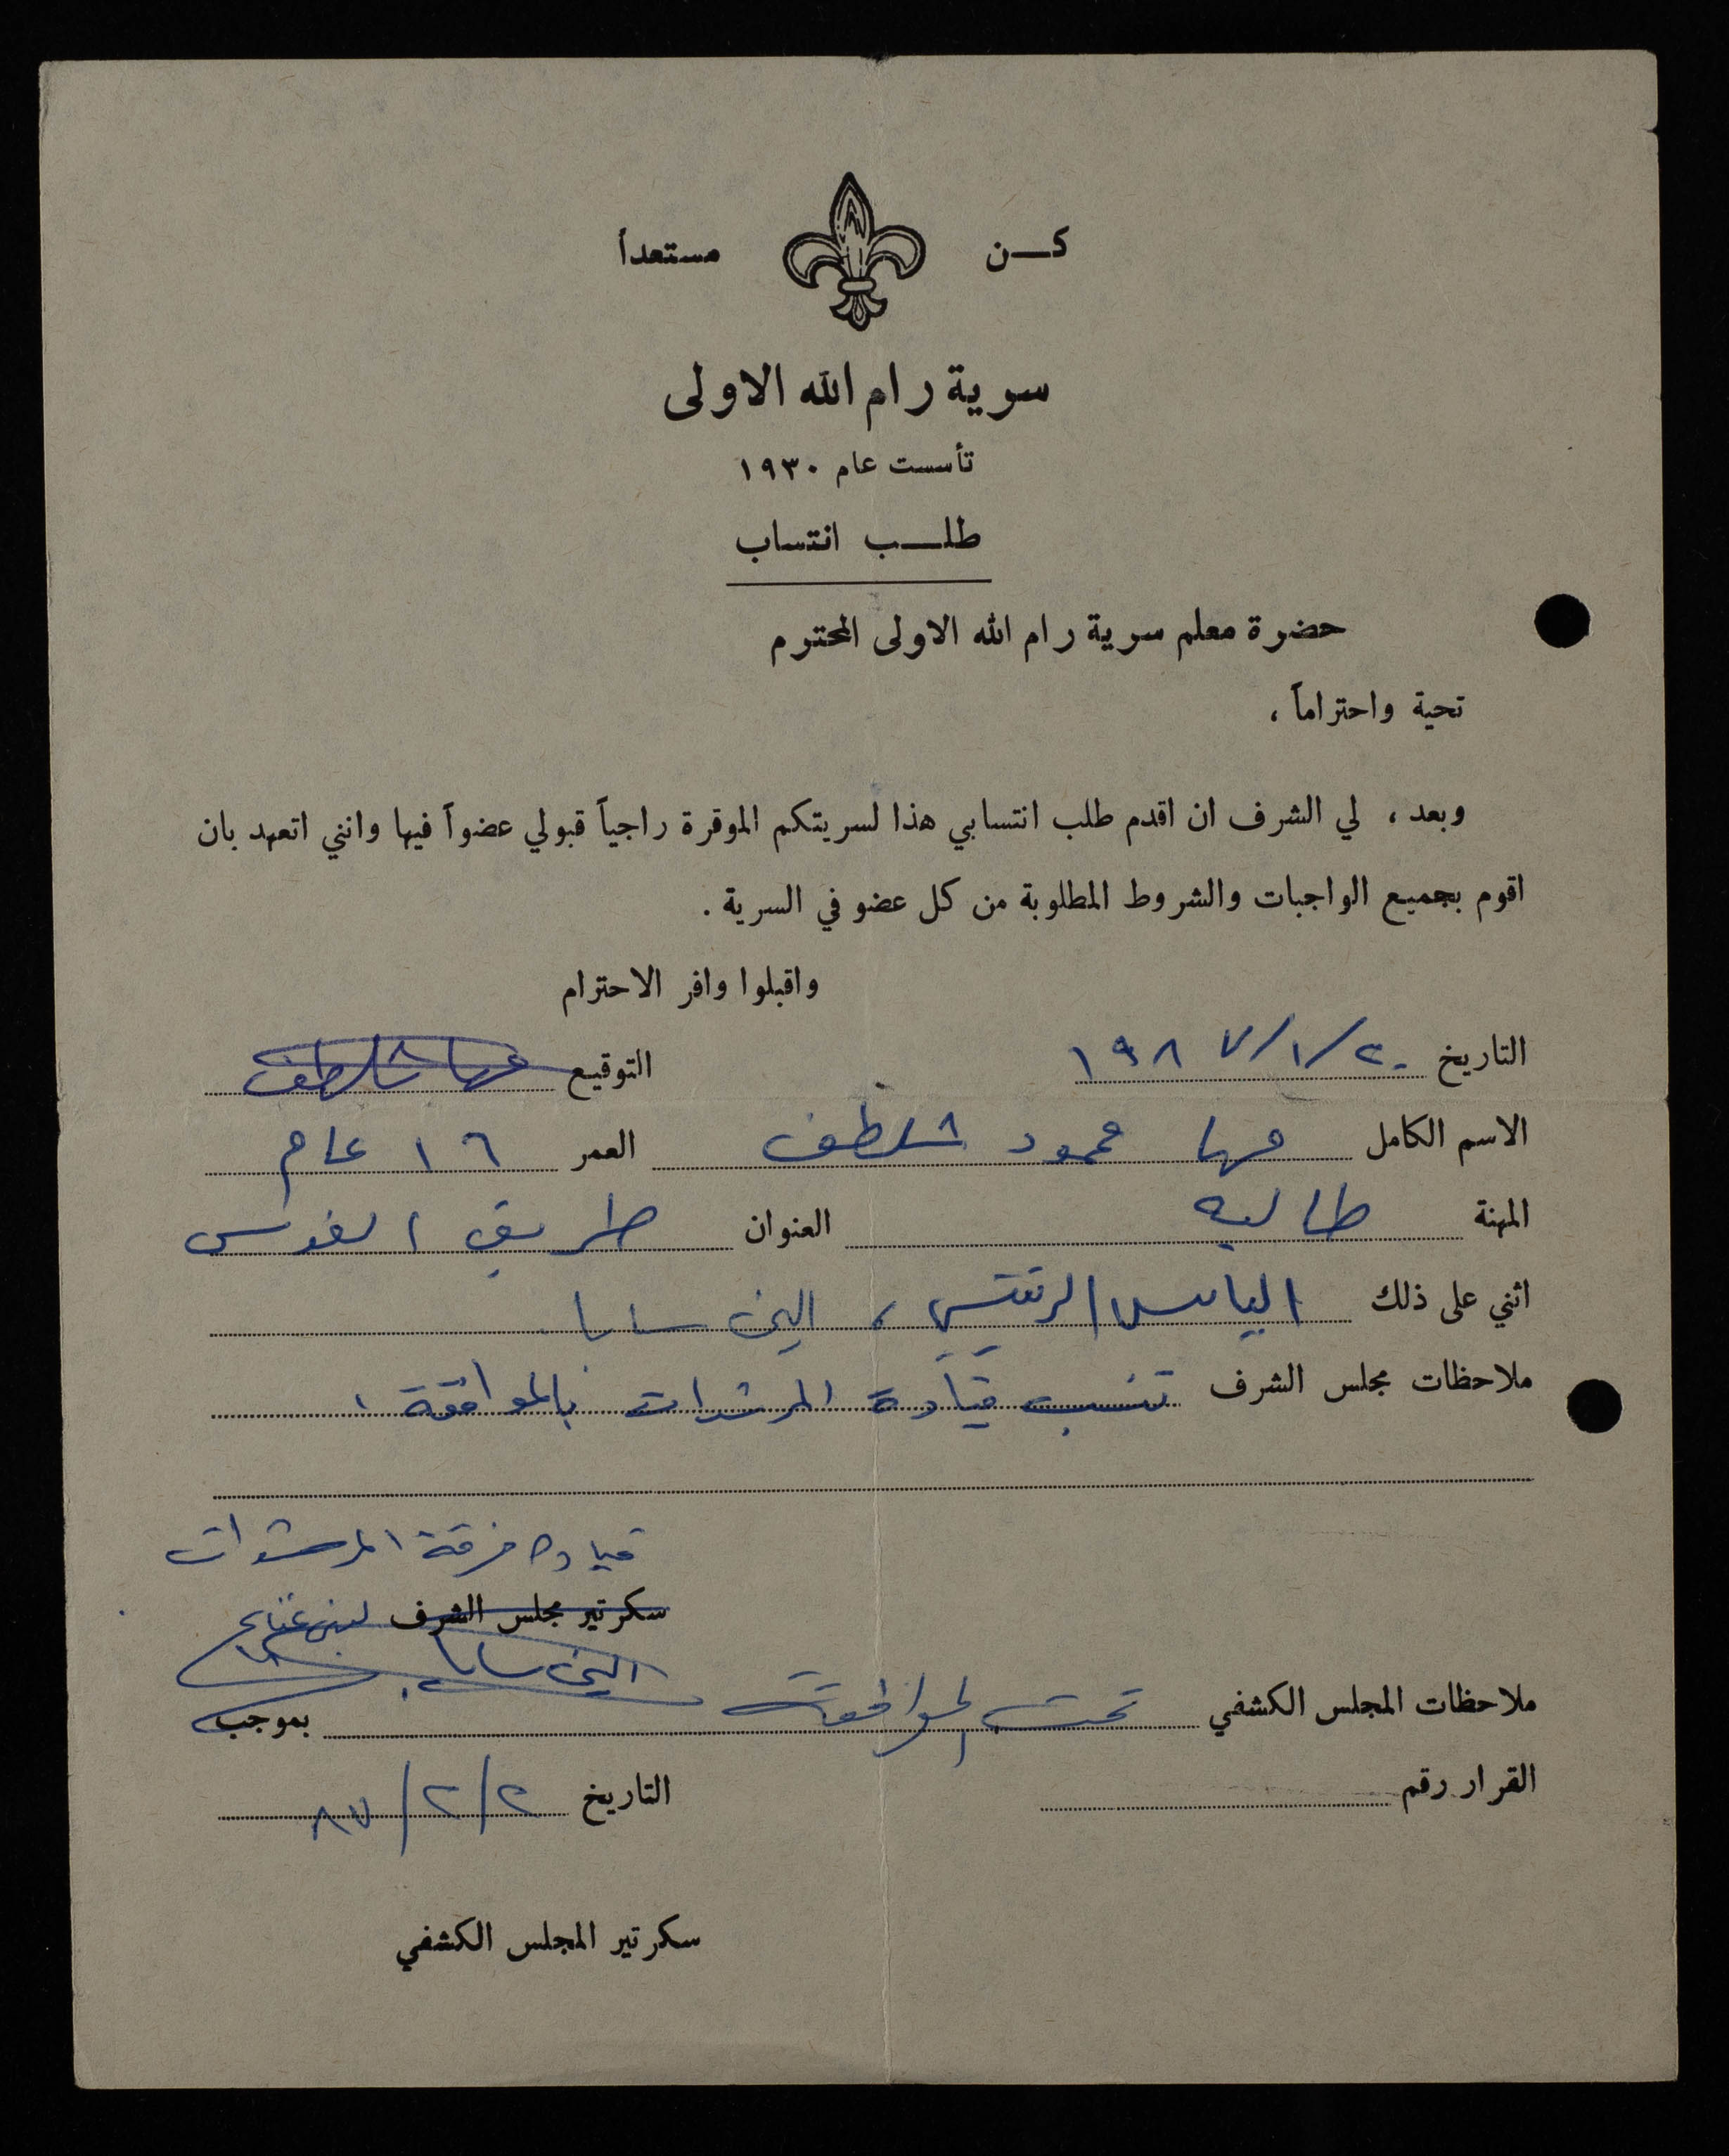 كــن مستعداً
سرية رام الله الاولى
تأسست عام ١٩٣٠
طلــب انتساب
حضرة معلم سرية رام الله الاولى المحترم
تحية واحتراماً ،
وبعد ، لي الشرف ان اقدم طلب انتسابي هذا لسريتكم الموقرة راجياً قبولي عضواً فيها وانني اتعهد بان
اقوم بجميع الواجبات والشروط المطلوبة من كل عضو في السرية .
واقبلوا وافر الاحترام
التاريخ ٢٠/١/١٩٨٧ التوقيع مها شلطف
الاسم الكامل مها محمود شلطف العمر ١٦ عام
المهنة طالبه العنوان طريق القدس
اثني على ذلك الياس الرنتيسي ، الين سابا
ملاحظات مجلس الشرف تنسب قيادة المرشدات بالموافقة .
قياده فرقة المرشدات
سكرتير مجلس الشرف لبنى
الين سابا
ملاحظات المجلس الكشفي تمت الموافقة بموجب
القرار رقم التاريخ ٢/٢/٨٧
سكرتير المجلس الكشفي